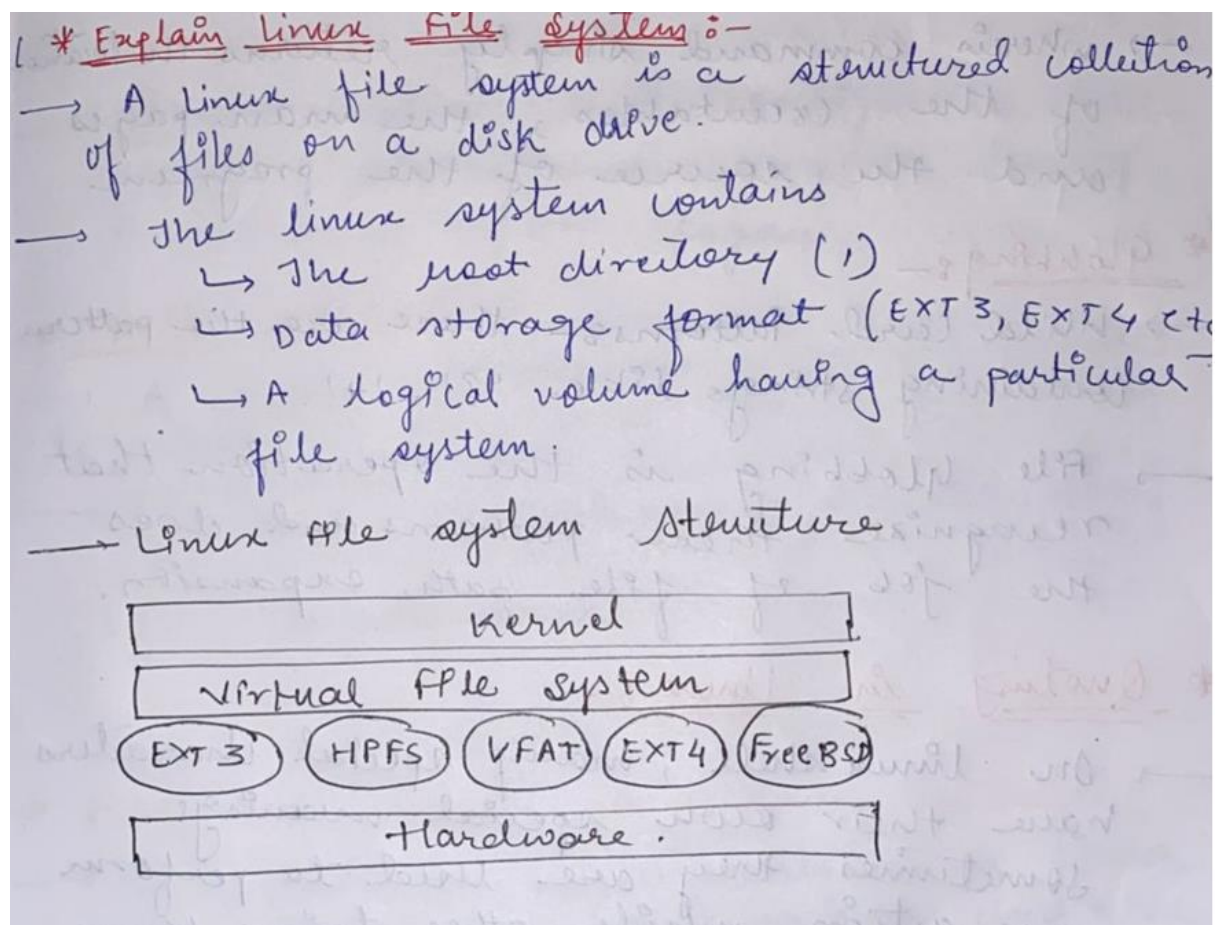 1 * Explain Linux File System :-
→ A Linux file system is a structured collection
of files on a disk drive.
→ The linux system contains
↳ The root directory (/)
↳ Data storage format (EXT 3, EXT 4 etc
↳ A logical volume having a particular
file system.
→ Linux file system structure
Kernel
Virtual File System
EXT 3 HPFS VFAT EXT 4 Free BSD
Hardware.